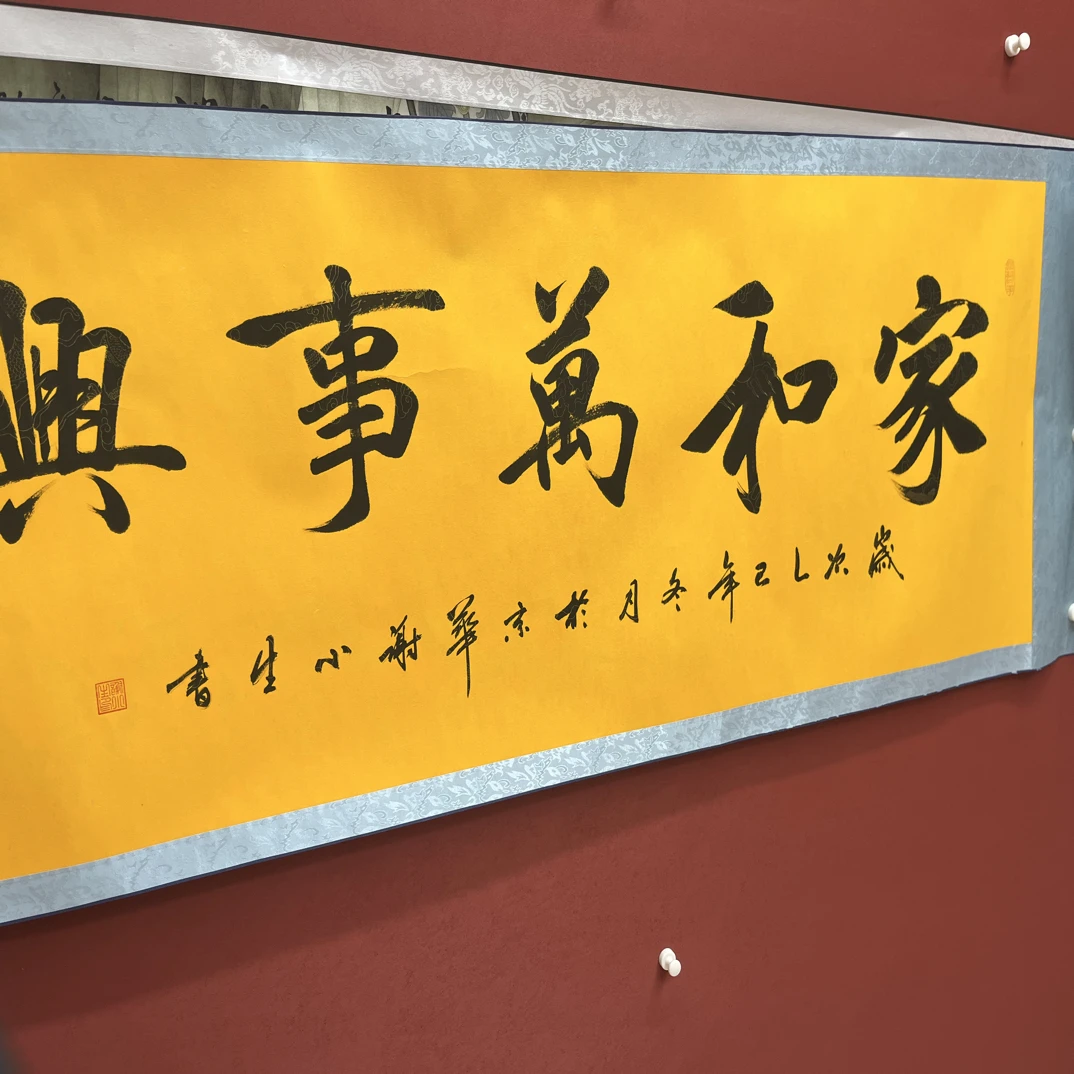 家和萬事興
歲次乙巳年冬月於京華謝小生書